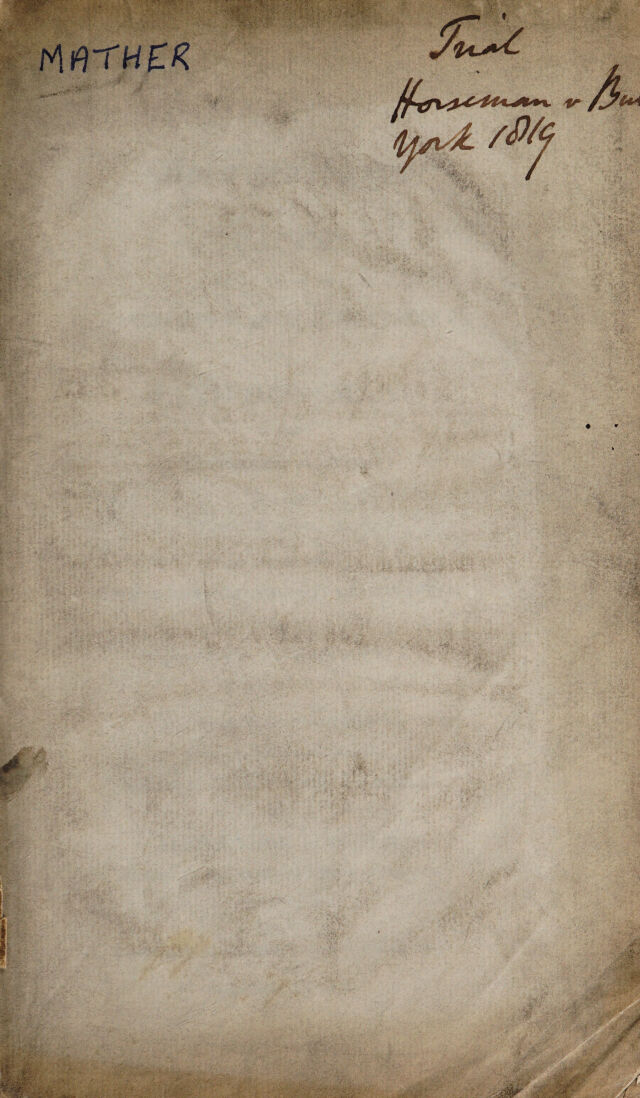 MATHER
Trial
Horseman v Bu
York 1819